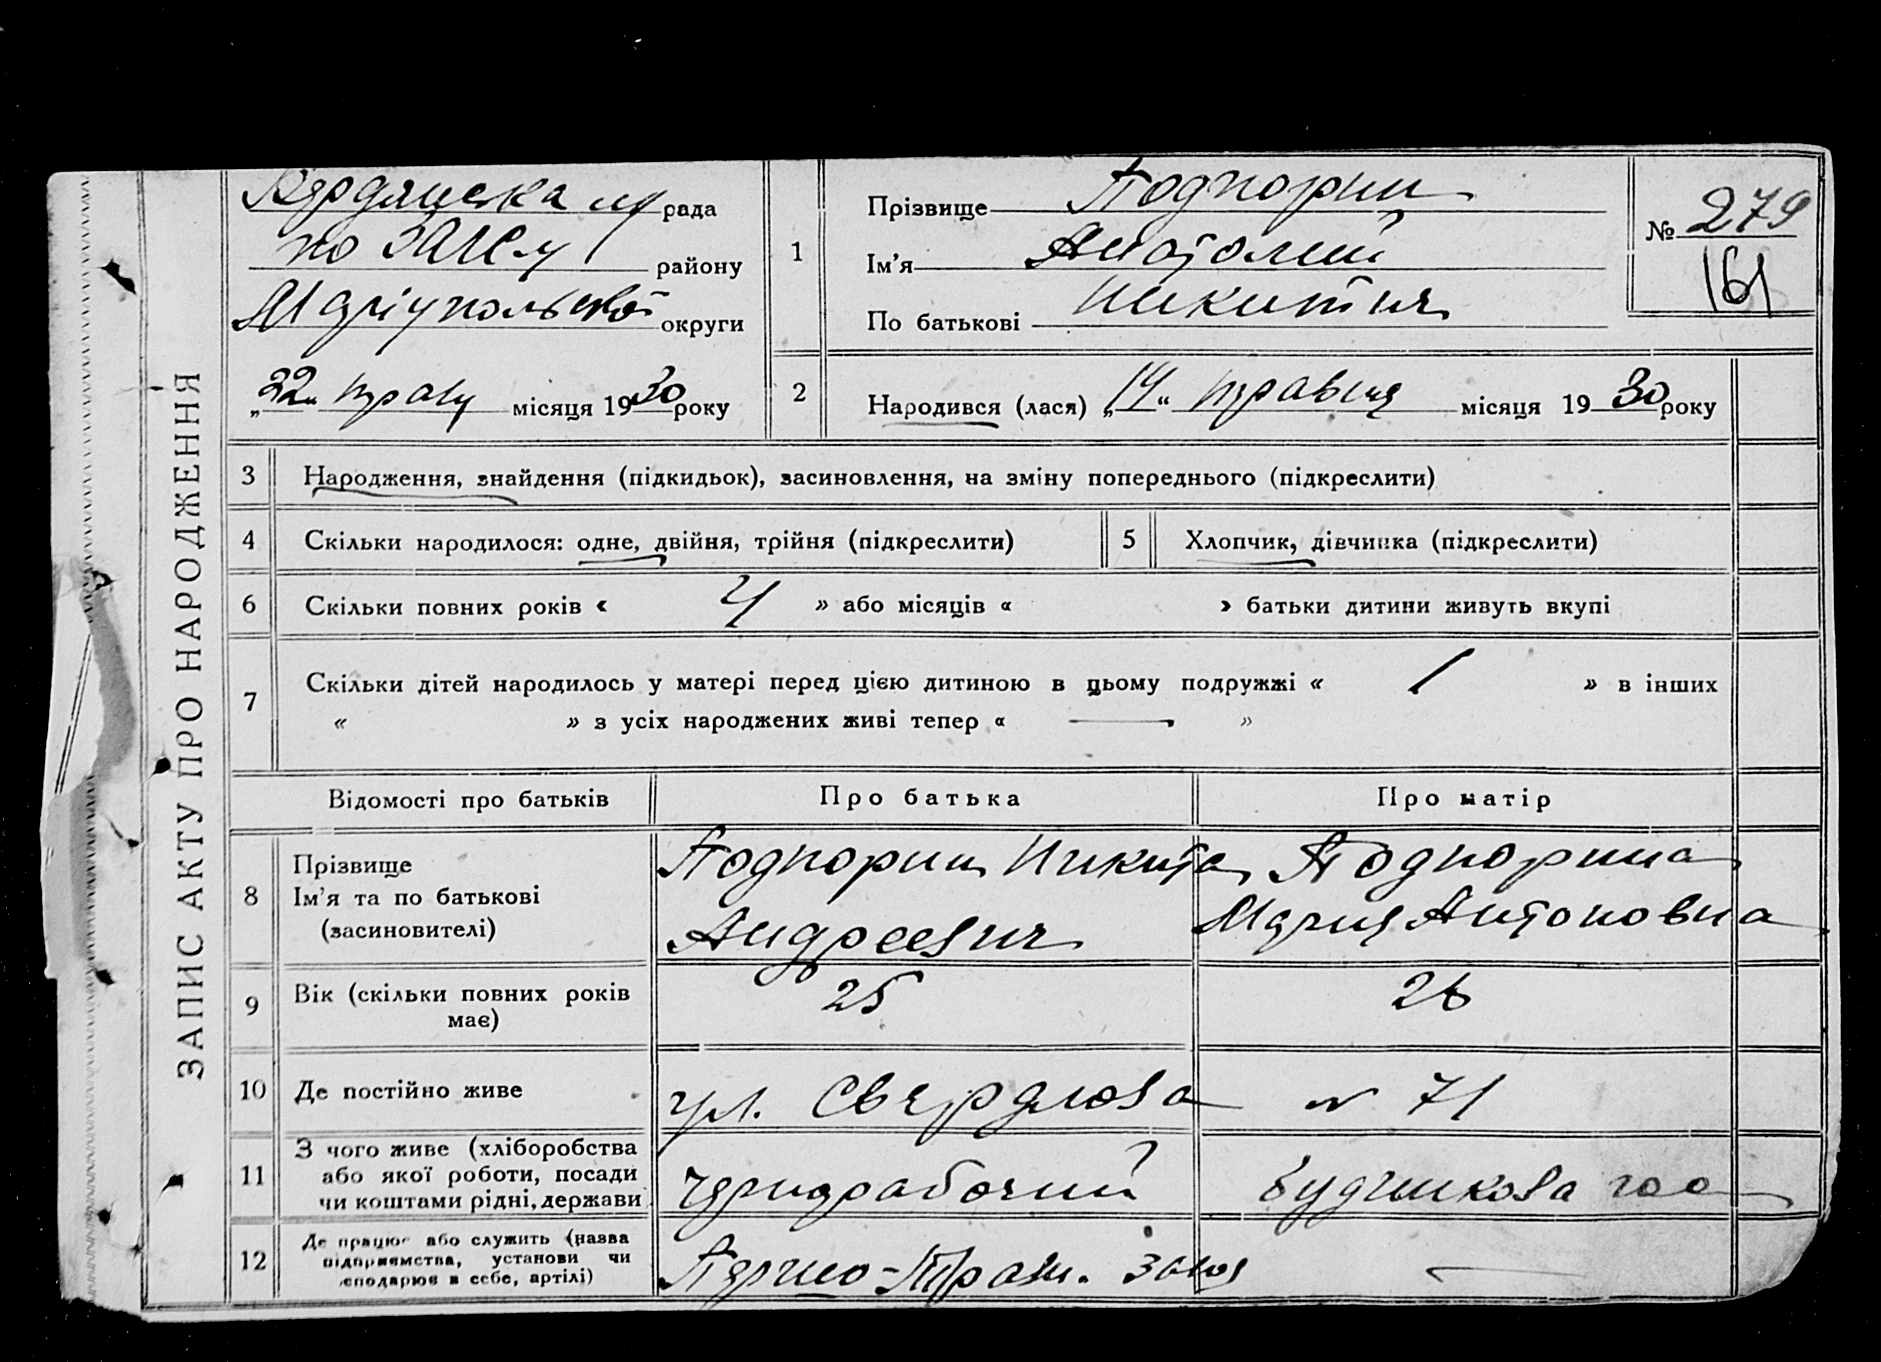 ЗАПИС АКТУ ПРО НАРОДЖЕННЯ
Бердянська м/рада
по ЗАГСу району
Маріупольської округи
„22“ травн місяця 1930 року
1
Прізвище Подпорин
Ім'я Анатолий
По батькові Никитич
№ 279
161
2
Народився (лася) „14“ травня місяця 1930 року
3 Народження, знайдення (підкидьок), засиновлення, на зміну попереднього (підкреслити)
4 Скільки народилося: одне, двійня, трійня (підкреслити)
5 Хлопчик, дівчинка (підкреслити)
6 Скільки повних років « 4 » або місяців « » батьки дитини живуть вкупі
7 Скільки дітей народилось у матері перед цією дитиною в цьому подружжі « 1 » в інших
« » з усіх народжених живі тепер « — »
Відомості про батьків Про батька Про матір
8 Прізвище
Ім'я та по батькові
(засиновителі)
Подпорин Никита
Андреевич
Подпорина
Мария Антоновна
9 Вік (скільки повних років
має)
25 26
10 Де постійно живе ул. Свердлова № 71
11 З чого живе (хліборобства
або якої роботи, посади
чи коштами рідні, держави
чернорабочий
12 Де працює або служить (назва
підприємства, установи чи
господарює в себе, артілі)